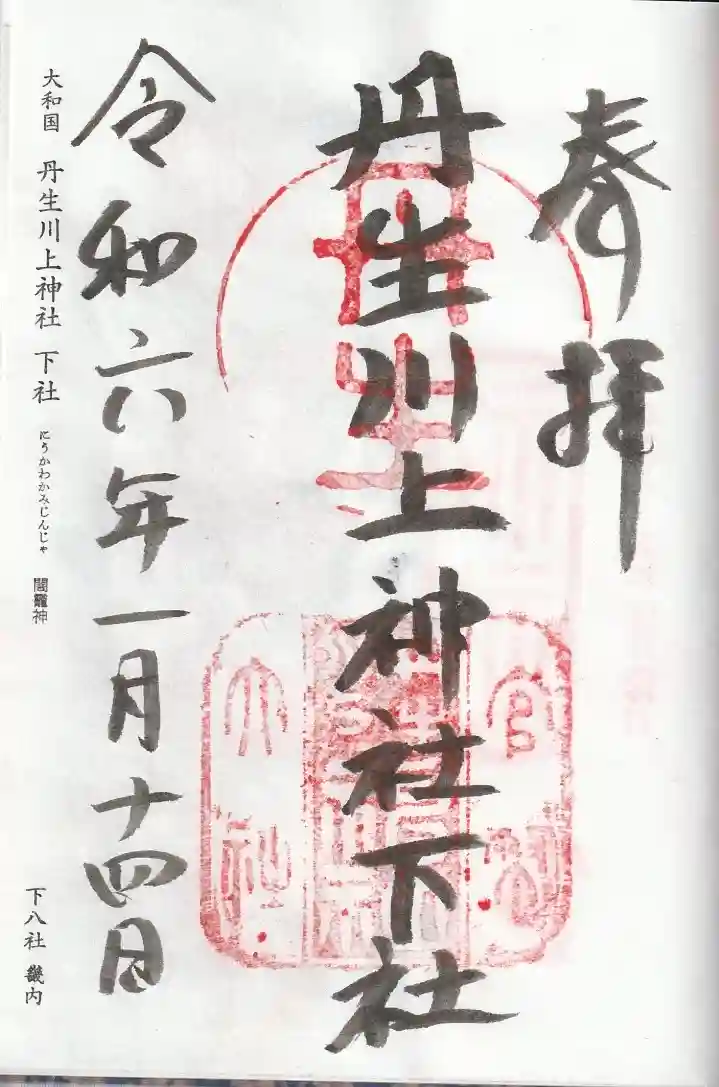 奉拝
丹生川上神社下社
丹生
官幣
大社
令和六年一月十四日
大和国 丹生川上神社 下社 にうかわかみじんじゃ 闇龗神
下八社 畿内